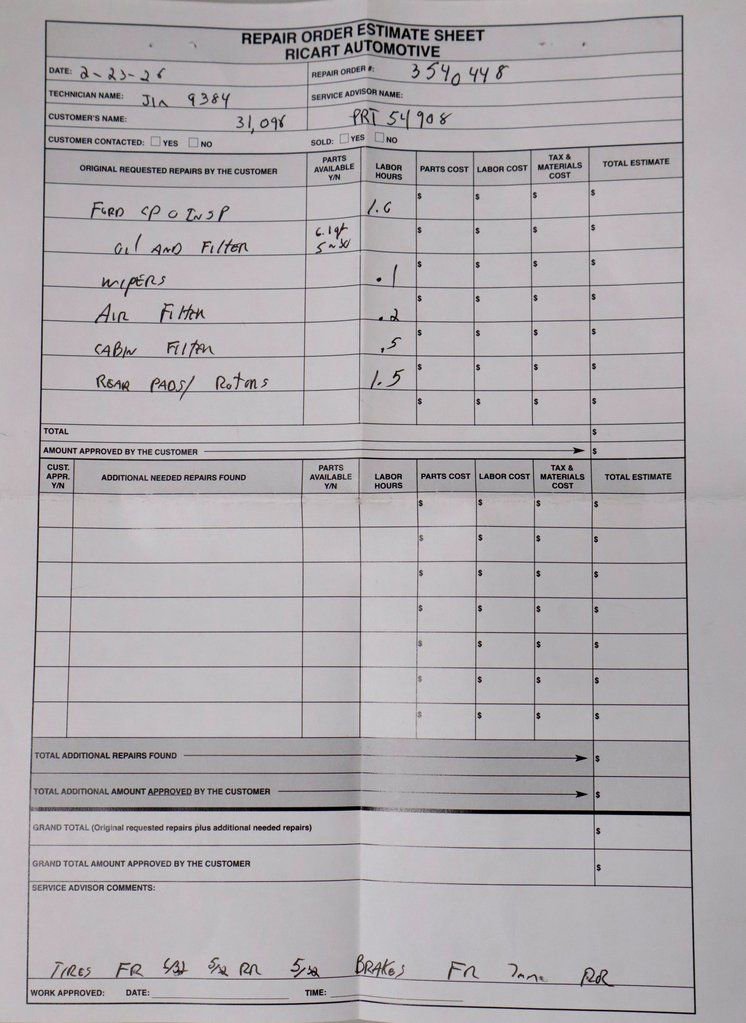 REPAIR ORDER ESTIMATE SHEET
RICART AUTOMOTIVE
DATE: 2-23-26 REPAIR ORDER #: 3540448
TECHNICIAN NAME: Jim 9384 SERVICE ADVISOR NAME:
CUSTOMER'S NAME: 31,098 PRT 54908
CUSTOMER CONTACTED: YES NO SOLD: YES NO
ORIGINAL REQUESTED REPAIRS BY THE CUSTOMER PARTS AVAILABLE Y/N LABOR HOURS PARTS COST LABOR COST TAX & MATERIALS COST TOTAL ESTIMATE
FORD CPO INSP 1.0 $ $ $ $
Oil AND Filter 6.1qt $ $ $ $
WIPERS .1 $ $ $ $
AIR Filter .2 $ $ $ $
CABIN Filter .5 $ $ $ $
REAR PADS/ Rotors 1.5 $ $ $ $
$ $ $ $
TOTAL $
AMOUNT APPROVED BY THE CUSTOMER $
CUST. APPR. Y/N ADDITIONAL NEEDED REPAIRS FOUND PARTS AVAILABLE Y/N LABOR HOURS PARTS COST LABOR COST TAX & MATERIALS COST TOTAL ESTIMATE
$ $ $ $
$ $ $ $
$ $ $ $
$ $ $ $
$ $ $ $
$ $ $ $
$ $ $ $
TOTAL ADDITIONAL REPAIRS FOUND $
TOTAL ADDITIONAL AMOUNT APPROVED BY THE CUSTOMER $
GRAND TOTAL (Original requested repairs plus additional needed repairs) $
GRAND TOTAL AMOUNT APPROVED BY THE CUSTOMER $
SERVICE ADVISOR COMMENTS:
TIRES FR 5/32 RR 5/32 BRAKES FR 7mm
WORK APPROVED: DATE: TIME: